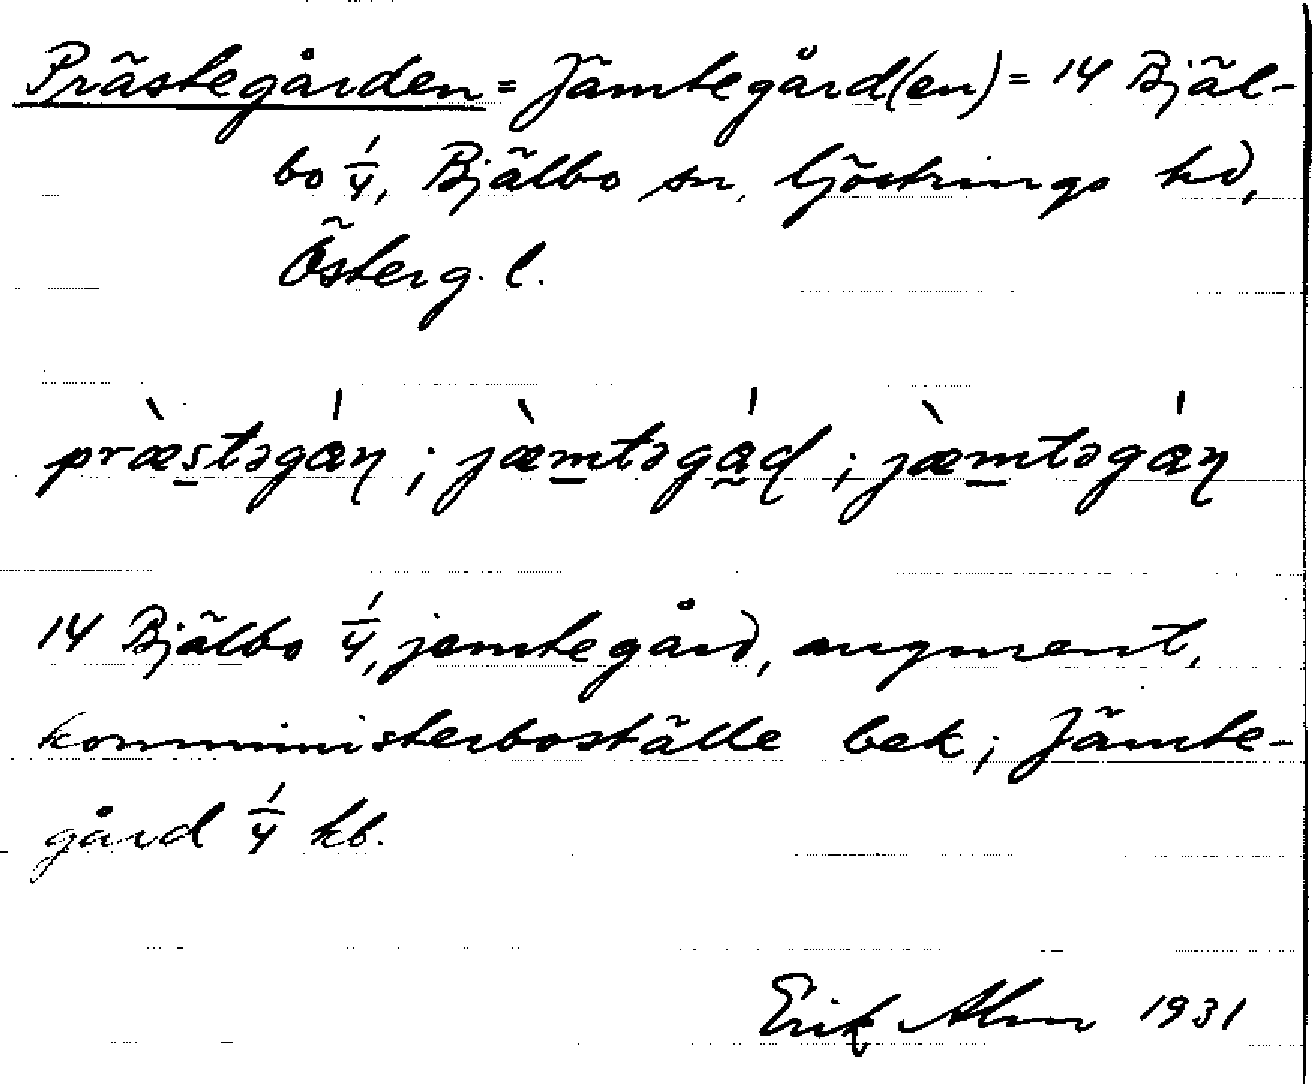 Prästegården = Jämtegård(en) = 14 Bjäl-
bo 1/4, Bjälbo sn, Göstrings hd,
Österg. l.
præ̀stəgáɳ ; jæ̀mtəgáɖ ; jæ̀mtəgáɳ
14 Bjälbo 1/4, jemtegård, augment,
komministerboställe bek ; Jämte-
gård 1/4 kb.
Erik Alm 1931